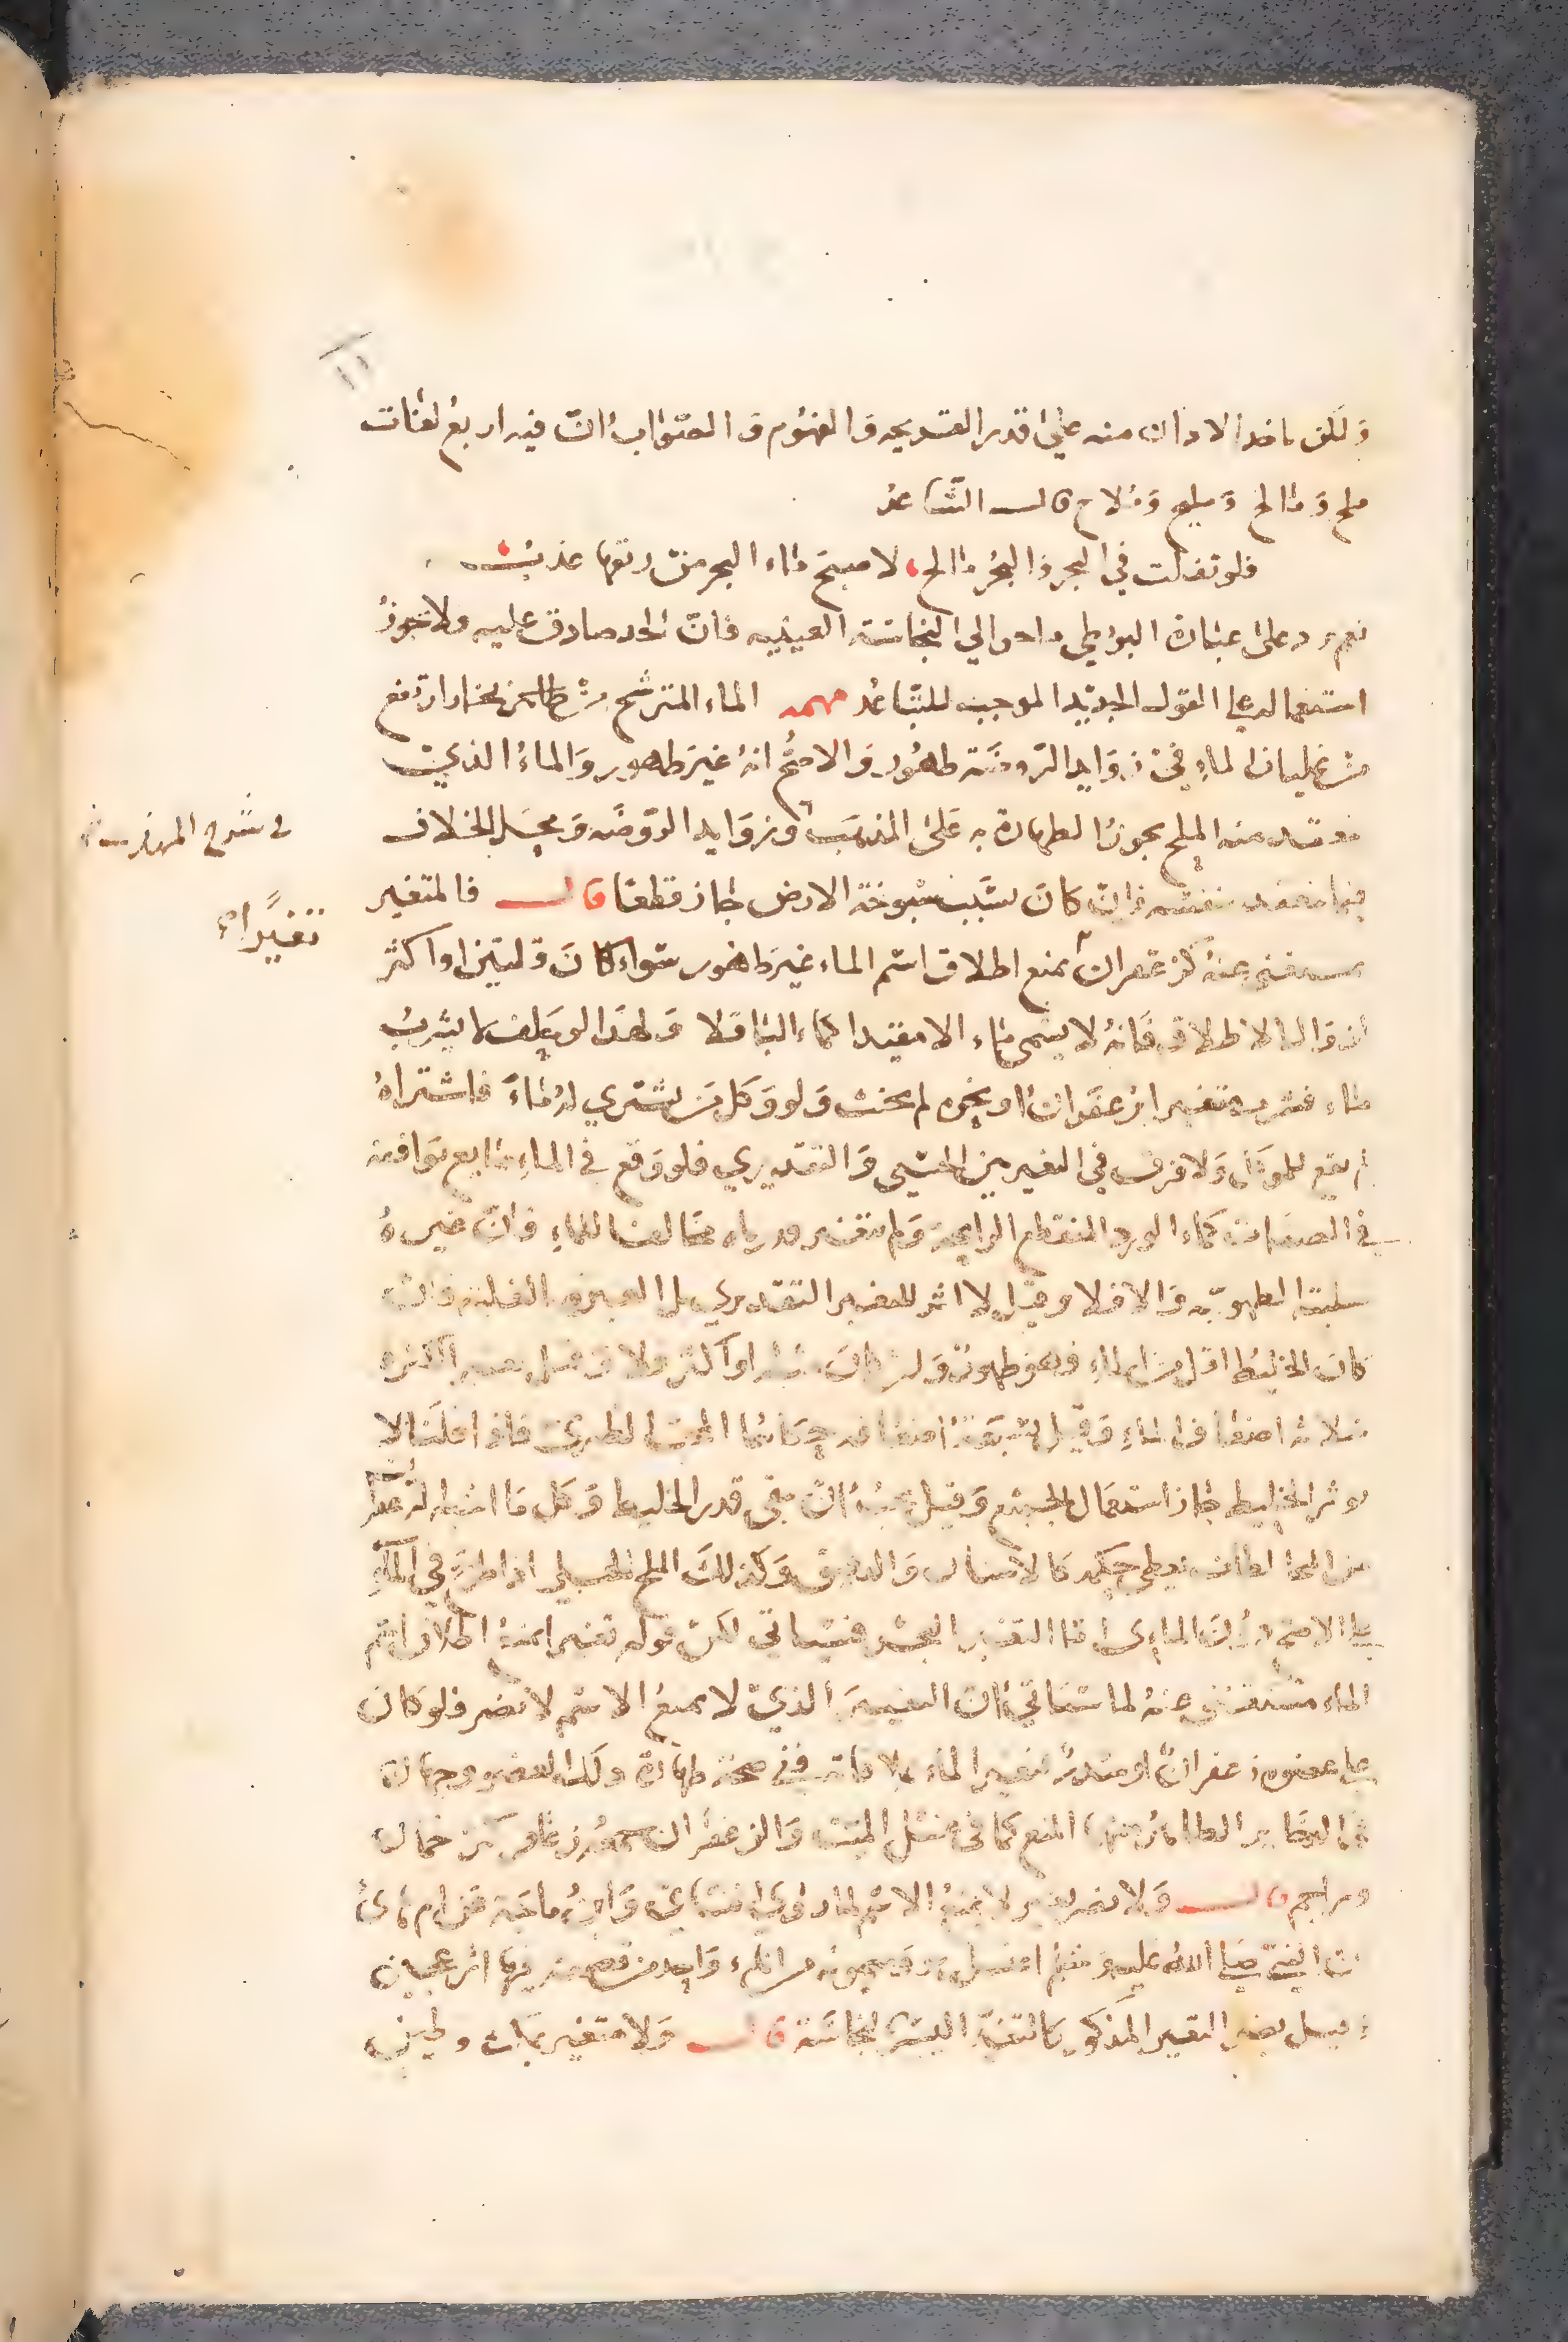 ١١
ولكن ماخذ الاذان منه على قدر القديحه والفهوم والصواب ان فيه اربع لغات
ملح ومالح ومليح وملاح قال الشاعر
فلو تفلت في البحر والبحر مالح لاصبح ماء البحر من ريقها عذب
نعم يرد على عبارة البويطي النجاسة العينيه فان الحد صادق عليه ولا يجوز
استعماله على القول الجديد الموجب للتباعد مهمه الماء المترشح من بخار ارتفع
من غليان الماء في زوايد الروضة طهور والاصح انه غير طهور والماء الذي
ينعقد منه الملح يجوز الطهارة به على المذهب وزوايد الروضه ومحل الخلاف
في شرح المهذب
فيما ينعقد بنفسه فان كان بسبب سبوخة الارض جاز قطعا قال فالمتغير
تغيرا
بمستغنى عنه كزعفران يمنع اطلاق اسم الماء غير طهور سواء كان قلتين او اكثر
لزوال الاطلاق فانه لا يسمى ماء الا مقيدا كماء الباقلا ولهذا لو حلف لا يشرب
ماء فشرب متغيرا بزعفران او نحوه لم يحنث ولو وكل من يشتري له ماء فاشتراه
لم يقع للموكل ولا فرق في التغير بين الحسي والتقديري فلو وقع في الماء مايع يوافقه
في الصفات كماء الورد المنقطع الرايحة ولم يتغير قدرناه مخالفا للماء فان غيره
سلبنا الطهورية والا فلا وقيل لا اثر للتغير التقديري بل المعتبر الغلبة فان
كان الخليط اقل من الماء فهو طهور وان كان مثله او اكثر فلا
ثلاثة اضعاف الماء وقيل سبعة اضعافه حكاهما المحب الطبري فاذا قلنا لا
يوثر الخليط جاز استعمال الجميع وقيل يجب ان يبقى قدر الخليط وكل ما اشبه الزعفران
من المخالطات يعطى حكمه كالاشنان والدقيق وكذلك الملح الجبلي اذا طرح في الماء
على الاصح دون المائي اما التغير النجس فسياتي لكن قوله تغيرا يمنع اطلاق اسم
الماء مستغنى عنه لما سياتي ان التغيير الذي لا يمنع الاسم لا يضر فلو كان
على عضوه زعفران او سدر فتغير الماء بملاقاته ففي صحة طهارة ذلك العضو وجهان
في البصاير الظاهر منهما المنع كما في غسل الميت والزعفران
قال ولا يضر تغير لا يمنع الاسم لما روى النسائي وابن ماجة عن ام هانئ
ان النبي صلى الله عليه وسلم اغتسل هو وميمونه من اناء واحد من قصعة فيها اثر عجين
وقيل يضر التغير المذكور كالتغير اليسير بنجاسة قال ولا متغير بمكث وطين